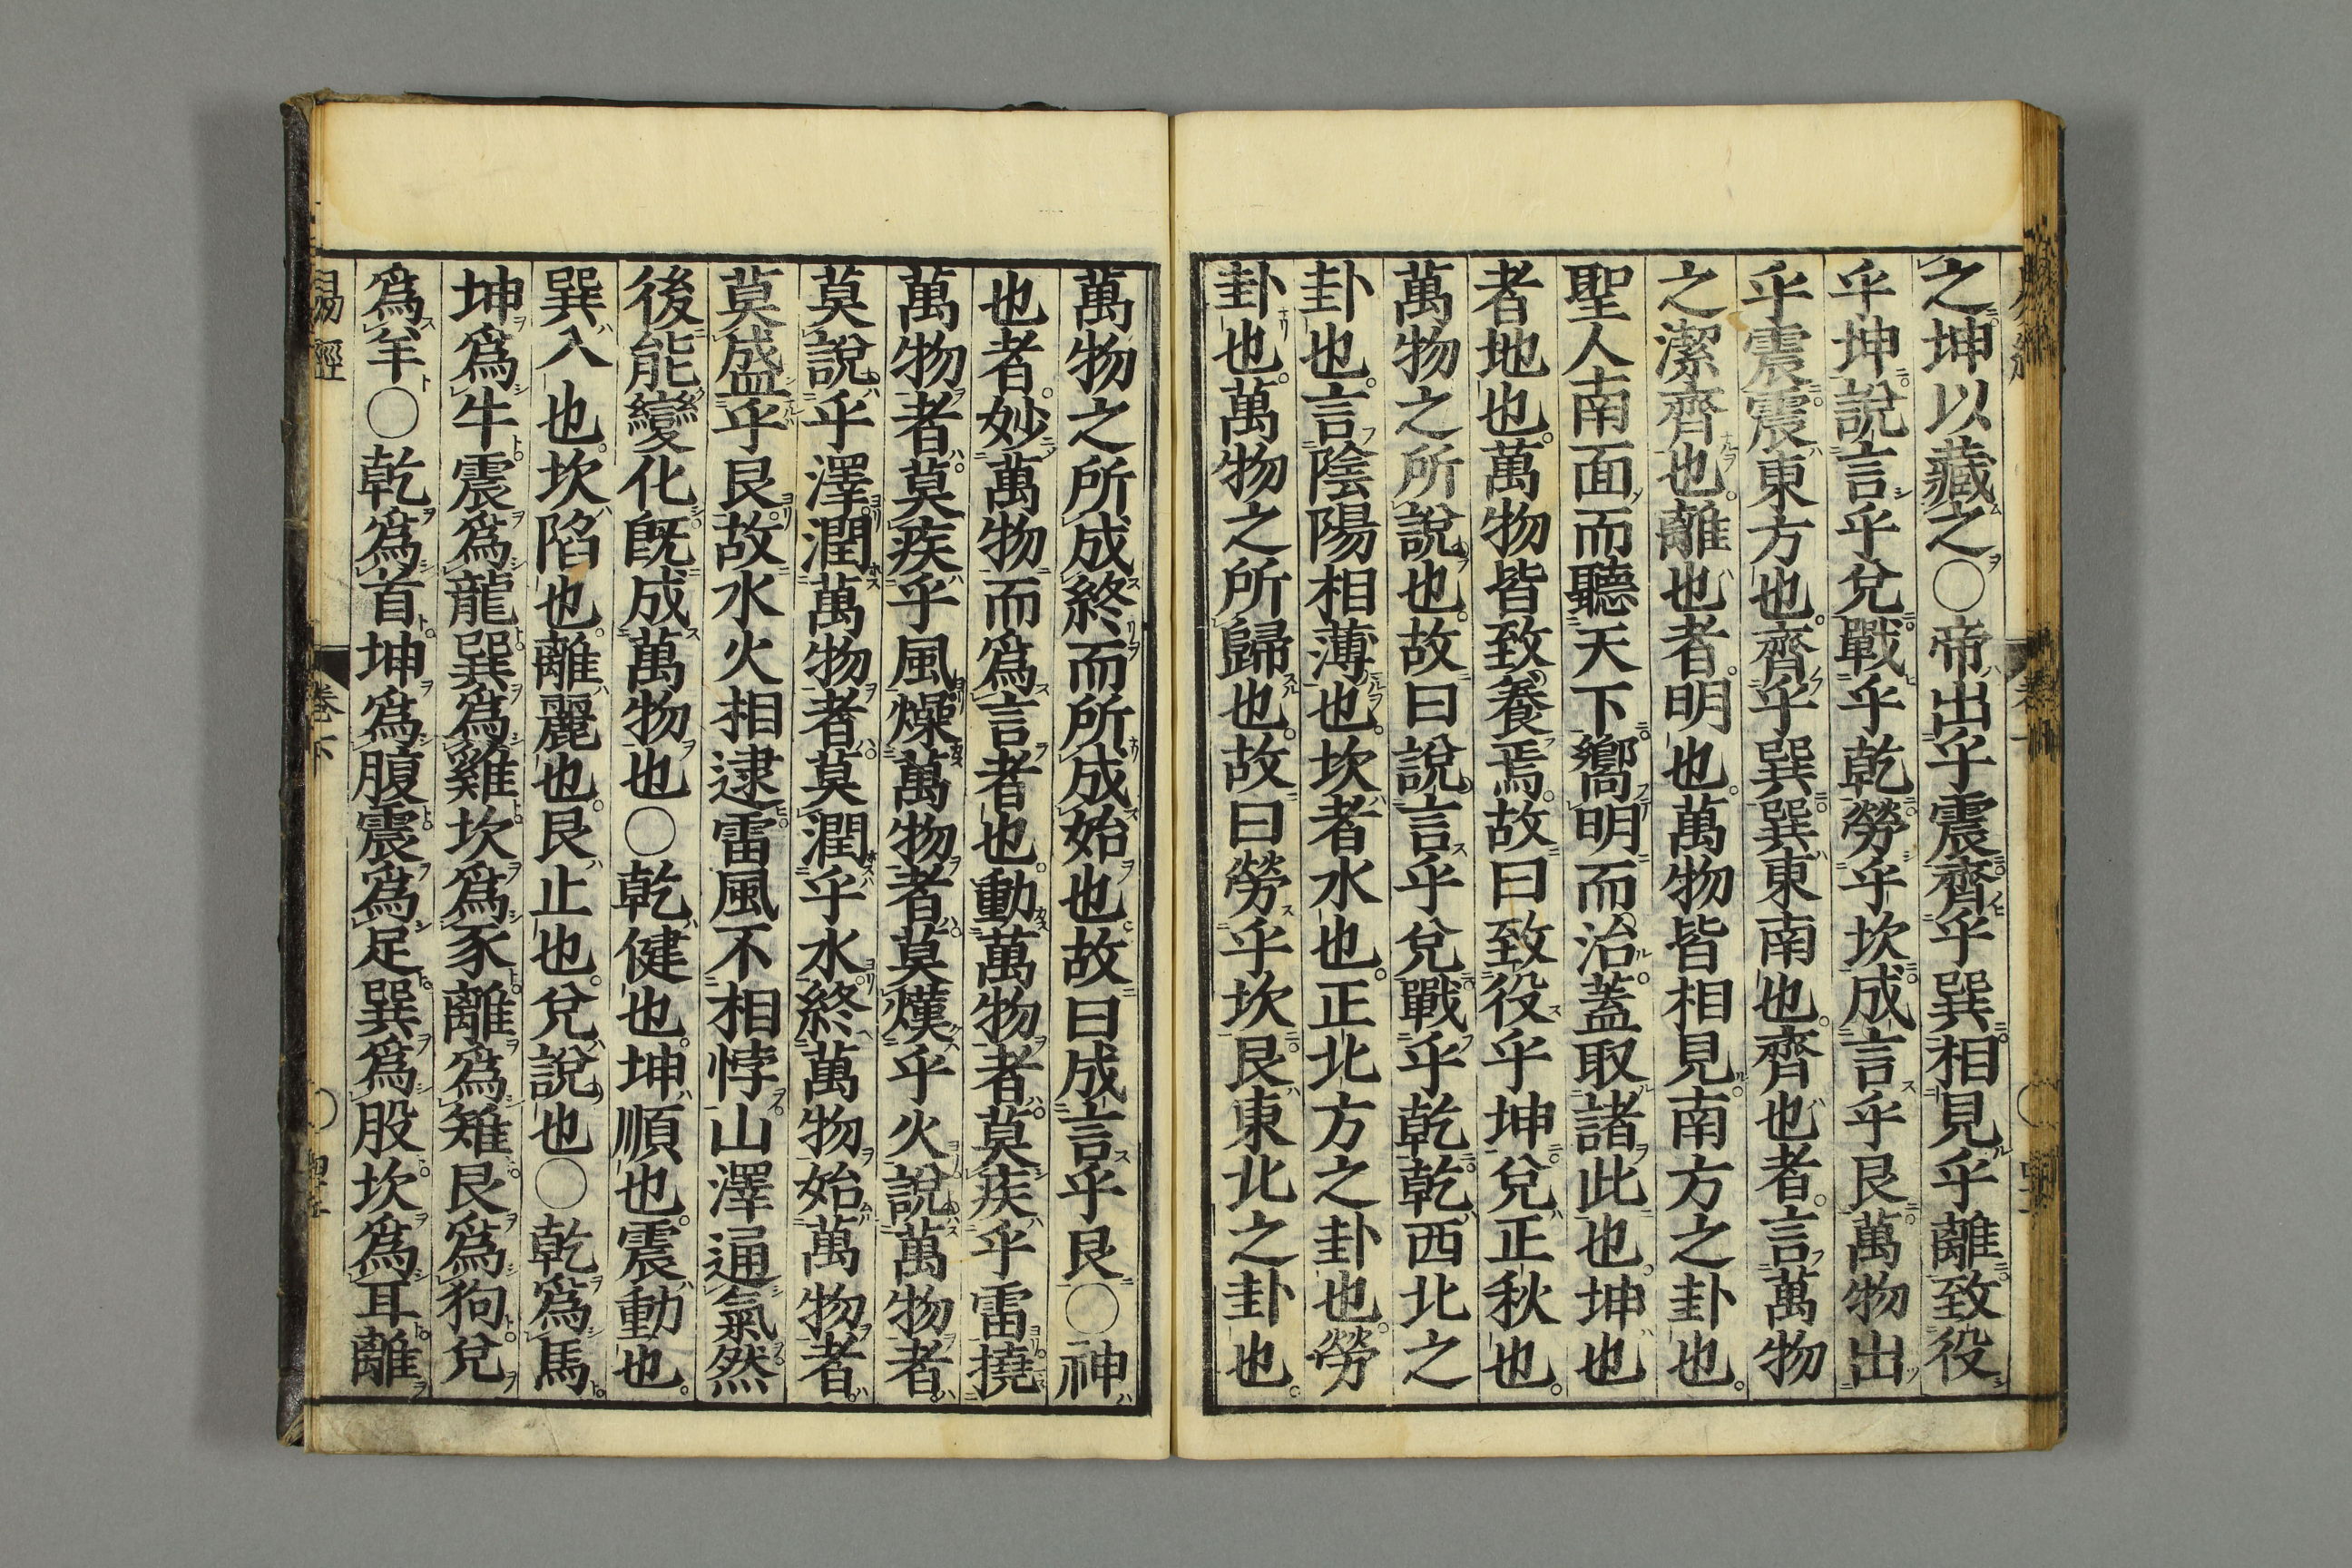 之坤以藏之○帝出乎震齊乎巽相見乎離致役
乎坤說言乎兌戰乎乾勞乎坎成言乎艮萬物出
乎震震東方也齊乎巽巽東南也齊也者言萬物
之潔齊也離也者明也萬物皆相見南方之卦也
聖人南面而聽天下嚮明而治蓋取諸此也坤也
者地也萬物皆致養焉故曰致役乎坤兌正秋也
萬物之所說也故曰說言乎兌戰乎乾乾西北之
卦也言陰陽相薄也坎者水也正北方之卦也勞
卦也萬物之所歸也故曰勞乎坎艮東北之卦也
萬物之所成終而所成始也故曰成言乎艮○神
也者妙萬物而爲言者也動萬物者莫疾乎雷撓
萬物者莫疾乎風燥萬物者莫熯乎火說萬物者
莫說乎澤潤萬物者莫潤乎水終萬物始萬物者
莫盛乎艮故水火相逮雷風不相悖山澤通氣然
後能變化旣成萬物也○乾健也坤順也震動也
巽入也坎陷也離麗也艮止也兌說也○乾爲馬
坤爲牛震爲龍巽爲雞坎爲豕離爲雉艮爲狗兌
爲羊○乾爲首坤爲腹震爲足巽爲股坎爲耳離
易經 卷六